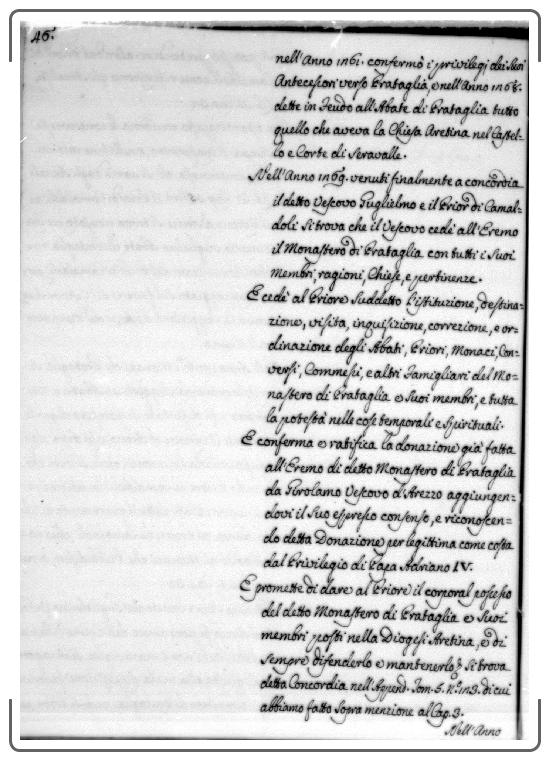 46.
nell'Anno 1161. confermò i privilegi dei Suoi
Antecessori verso Prataglia, e nell'Anno 1168.
dette in Feudo all'Abate di Prataglia tutto
quello che aveva la Chiesa Aretina nel Castel-
lo e Corte di Seravalle.
Nell'Anno 1169. venuti finalmente a concordia
il detto Vescovo Guglielmo e il Prior di Camal-
doli si trova che il Vescovo cedè all'Eremo
il Monastero di Prataglia con tutti i Suoi
membri, ragioni, Chiese, e pertinenze.
E cedè al Priore Suddetto l'istituzione, destina-
zione, visita, inquisizione, correzione, e or-
dinazione degli Abati, Priori, Monaci, Con-
versi, Commessi, e altri Famigliari del Mo-
nastero di Prataglia e Suoi membri, e tutta
la potestà nelle cose temporali e Spirituali.
E conferma e ratifica la donazione già fatta
all'Eremo di detto Monastero di Prataglia
da Girolamo Vescovo d'Arezzo aggiungen-
dovi il Suo espresso consenso, e riconoscen-
do detta Donazione per legittima come costa
dal Privilegio di Papa Adriano IV.
E promette di dare al Priore il corporal possesso
del detto Monastero di Prataglia e Suoi
membri posti nella Diogesi Aretina, e di
sempre difenderlo e mantenerlo Si trova
detta Concordia nell'Append. Tom. 5. N.º 113. di cui
abbiamo fatto Sopra menzione al Cap. 3.
Nell'Anno